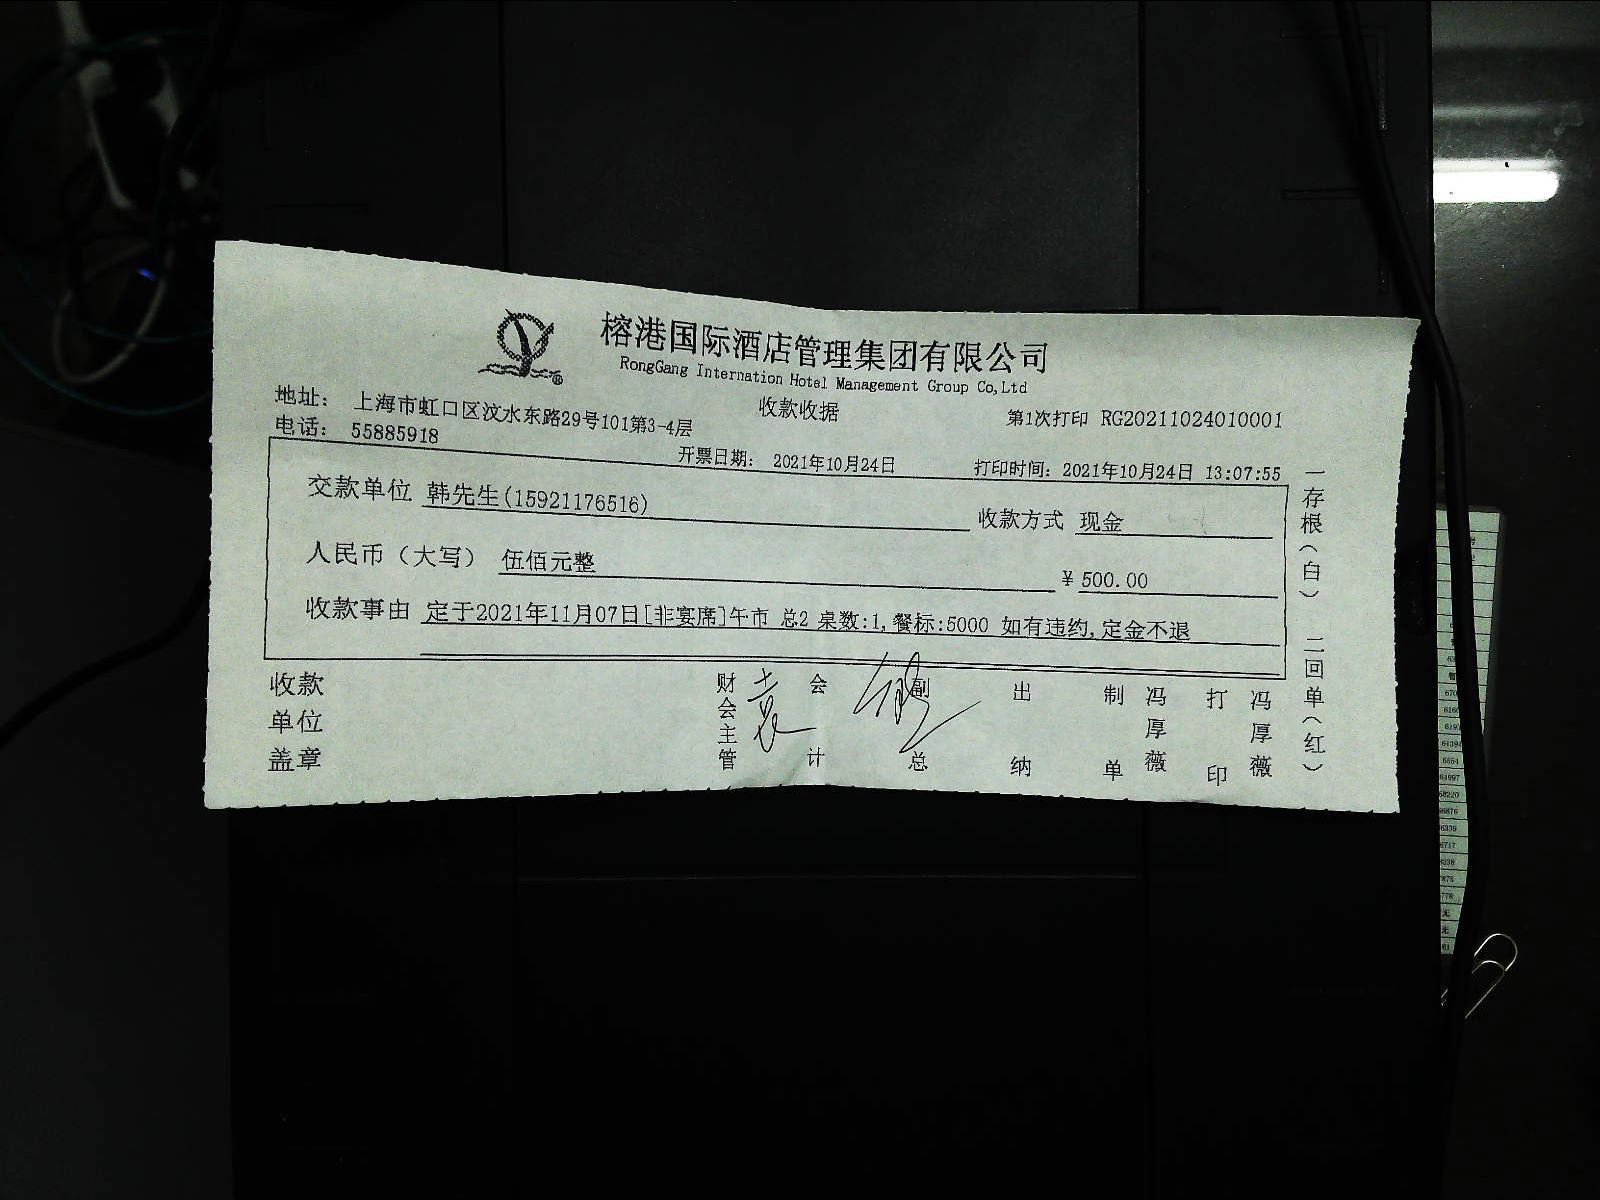 榕港国际酒店管理集团有限公司
RongGang Internation Hotel Management Group Co,Ltd
地址： 上海市虹口区汶水东路29号101第3-4层
收款收据
第1次打印 RG20211024010001
电话： 55885918
开票日期： 2021年10月24日
打印时间：2021年10月24日 13:07:55
交款单位 韩先生(15921176516)
收款方式 现金
人民币（大写） 伍佰元整
¥ 500.00
收款事由 定于2021年11月07日[非宴席]午市 总2 桌数:1,餐标:5000 如有违约,定金不退
收款单位盖章
财会主管
会计
副总
出纳
制单
冯厚薇
打印
冯厚薇
一存根（白） 二回单（红）